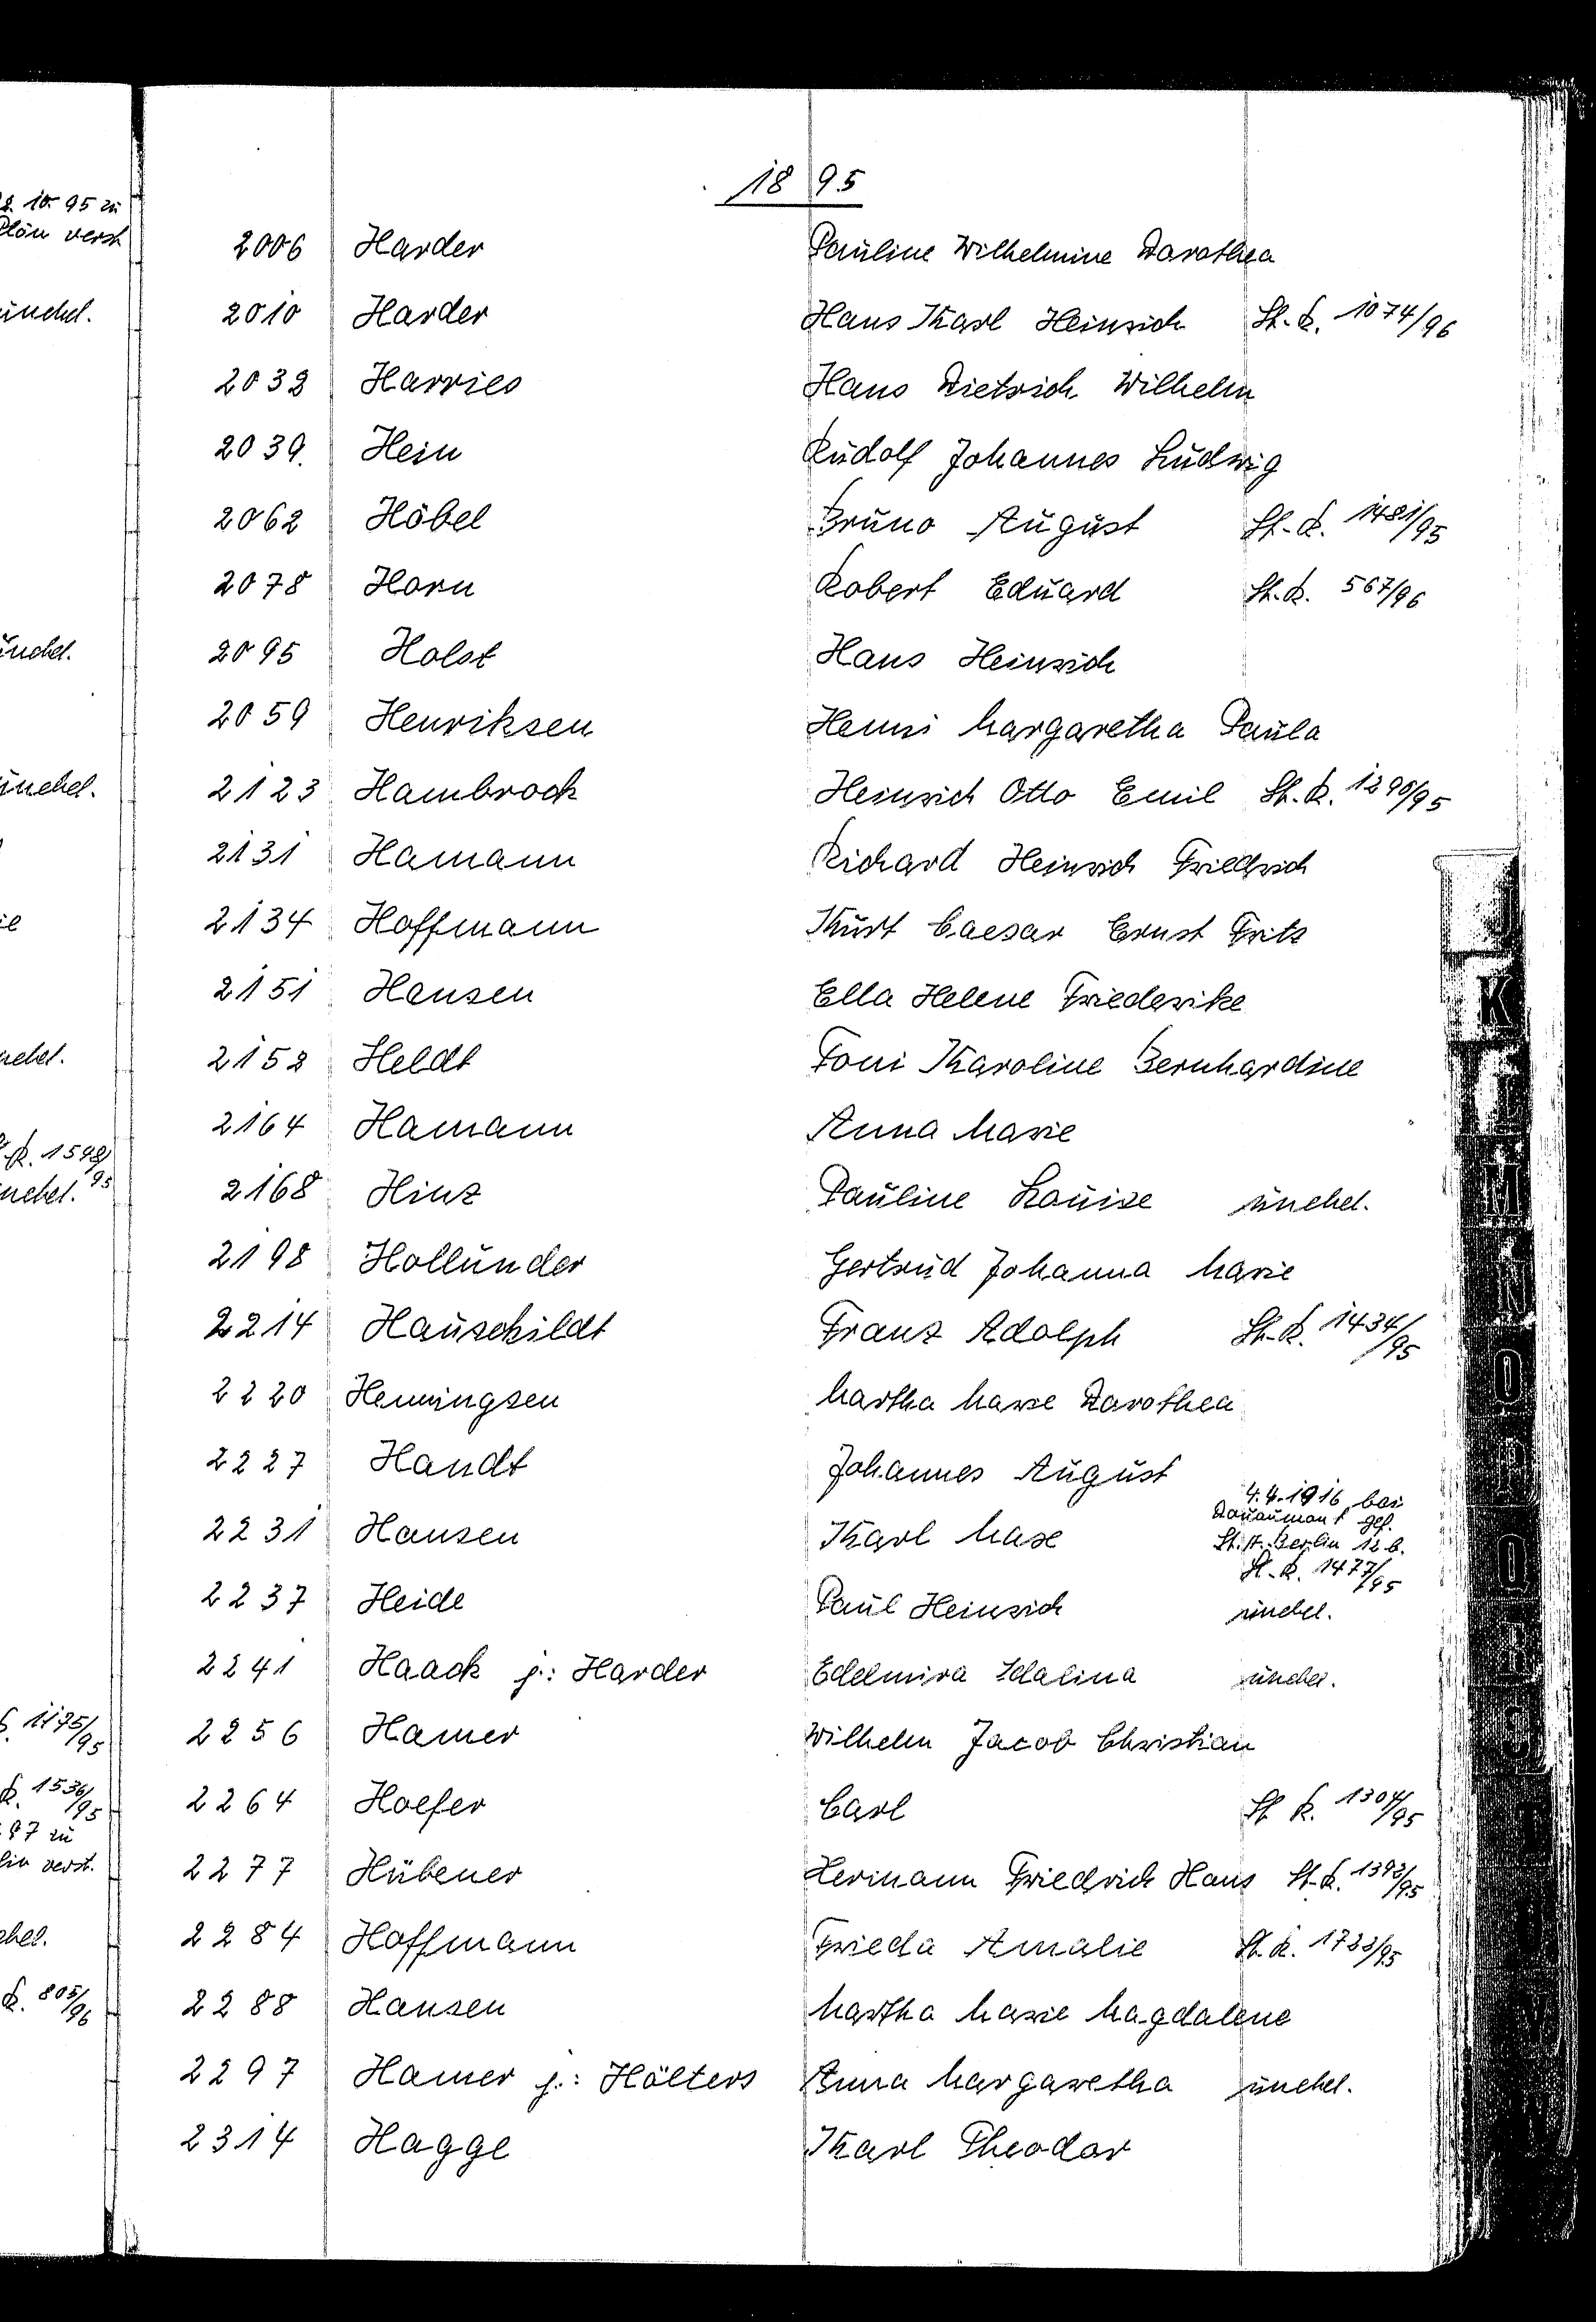 1895
2006 Harder Pauline Wilhelmine Dorothea
2010 Harder Hans Karl Heinrich St.-R. 1074/96
2032 Harries Hans Dietrich Wilhelm
2039. Hein Rudolf Johannes Ludwig
2062 Höbel Bruno August St.-R. 1481/95
2078 Horn Robert Eduard St.-R. 567/96
2095 Holst Hans Heinrich
2059 Henriksen Henni Margaretha Paula
2123 Hambrock Heinrich Otto Emil St.-R. 1290/95
2131 Hamann Richard Heinrich Friedrich
2134 Hoffmann Kurt Caesar Ernst Fritz
2151 Hansen Ella Helene Friederike
2152 Heldt Toni Karoline Bernhardine
2164 Hamann Anna Marie
2168 Hinz Pauline Louise unehel.
2198 Hollunder Gertrud Johanna Marie
2214 Hauschildt Franz Adolph St.-R. 1434/95
2220 Henningsen Martha Marie Dorothea
2227 Handt Johannes August
2231 Hansen Karl Max 4.4.1916 bei Douaumont gef. St.A. Berlin 12 b. St.-R. 1477/95
2237 Heide Paul Heinrich unehel.
2241 Haack j.: Harder Edelmira Idalina unehel.
2256 Hamer Wilhelm Jacob Christian
2264 Hoefer Carl St R. 1304/95
2277 Hübener Hermann Friedrich Hans St-R. 1392/95
2284 Hoffmann Frieda Amalie St.R. 1722/95
2288 Hansen Martha Marie Magdalene
2297 Hamer j.: Hölters Anna Margaretha unehel.
2314 Hagge Karl Theodor
10. 95 zu
Plön verst
unehel.
unehel.
unehel.
nehel.
R. 1598/95
nehel.
1175/95
R. 1536/95
97 zu
verst.
ehel.
R. 805/96
K
L
M
N
O
P
Q
R
S
T